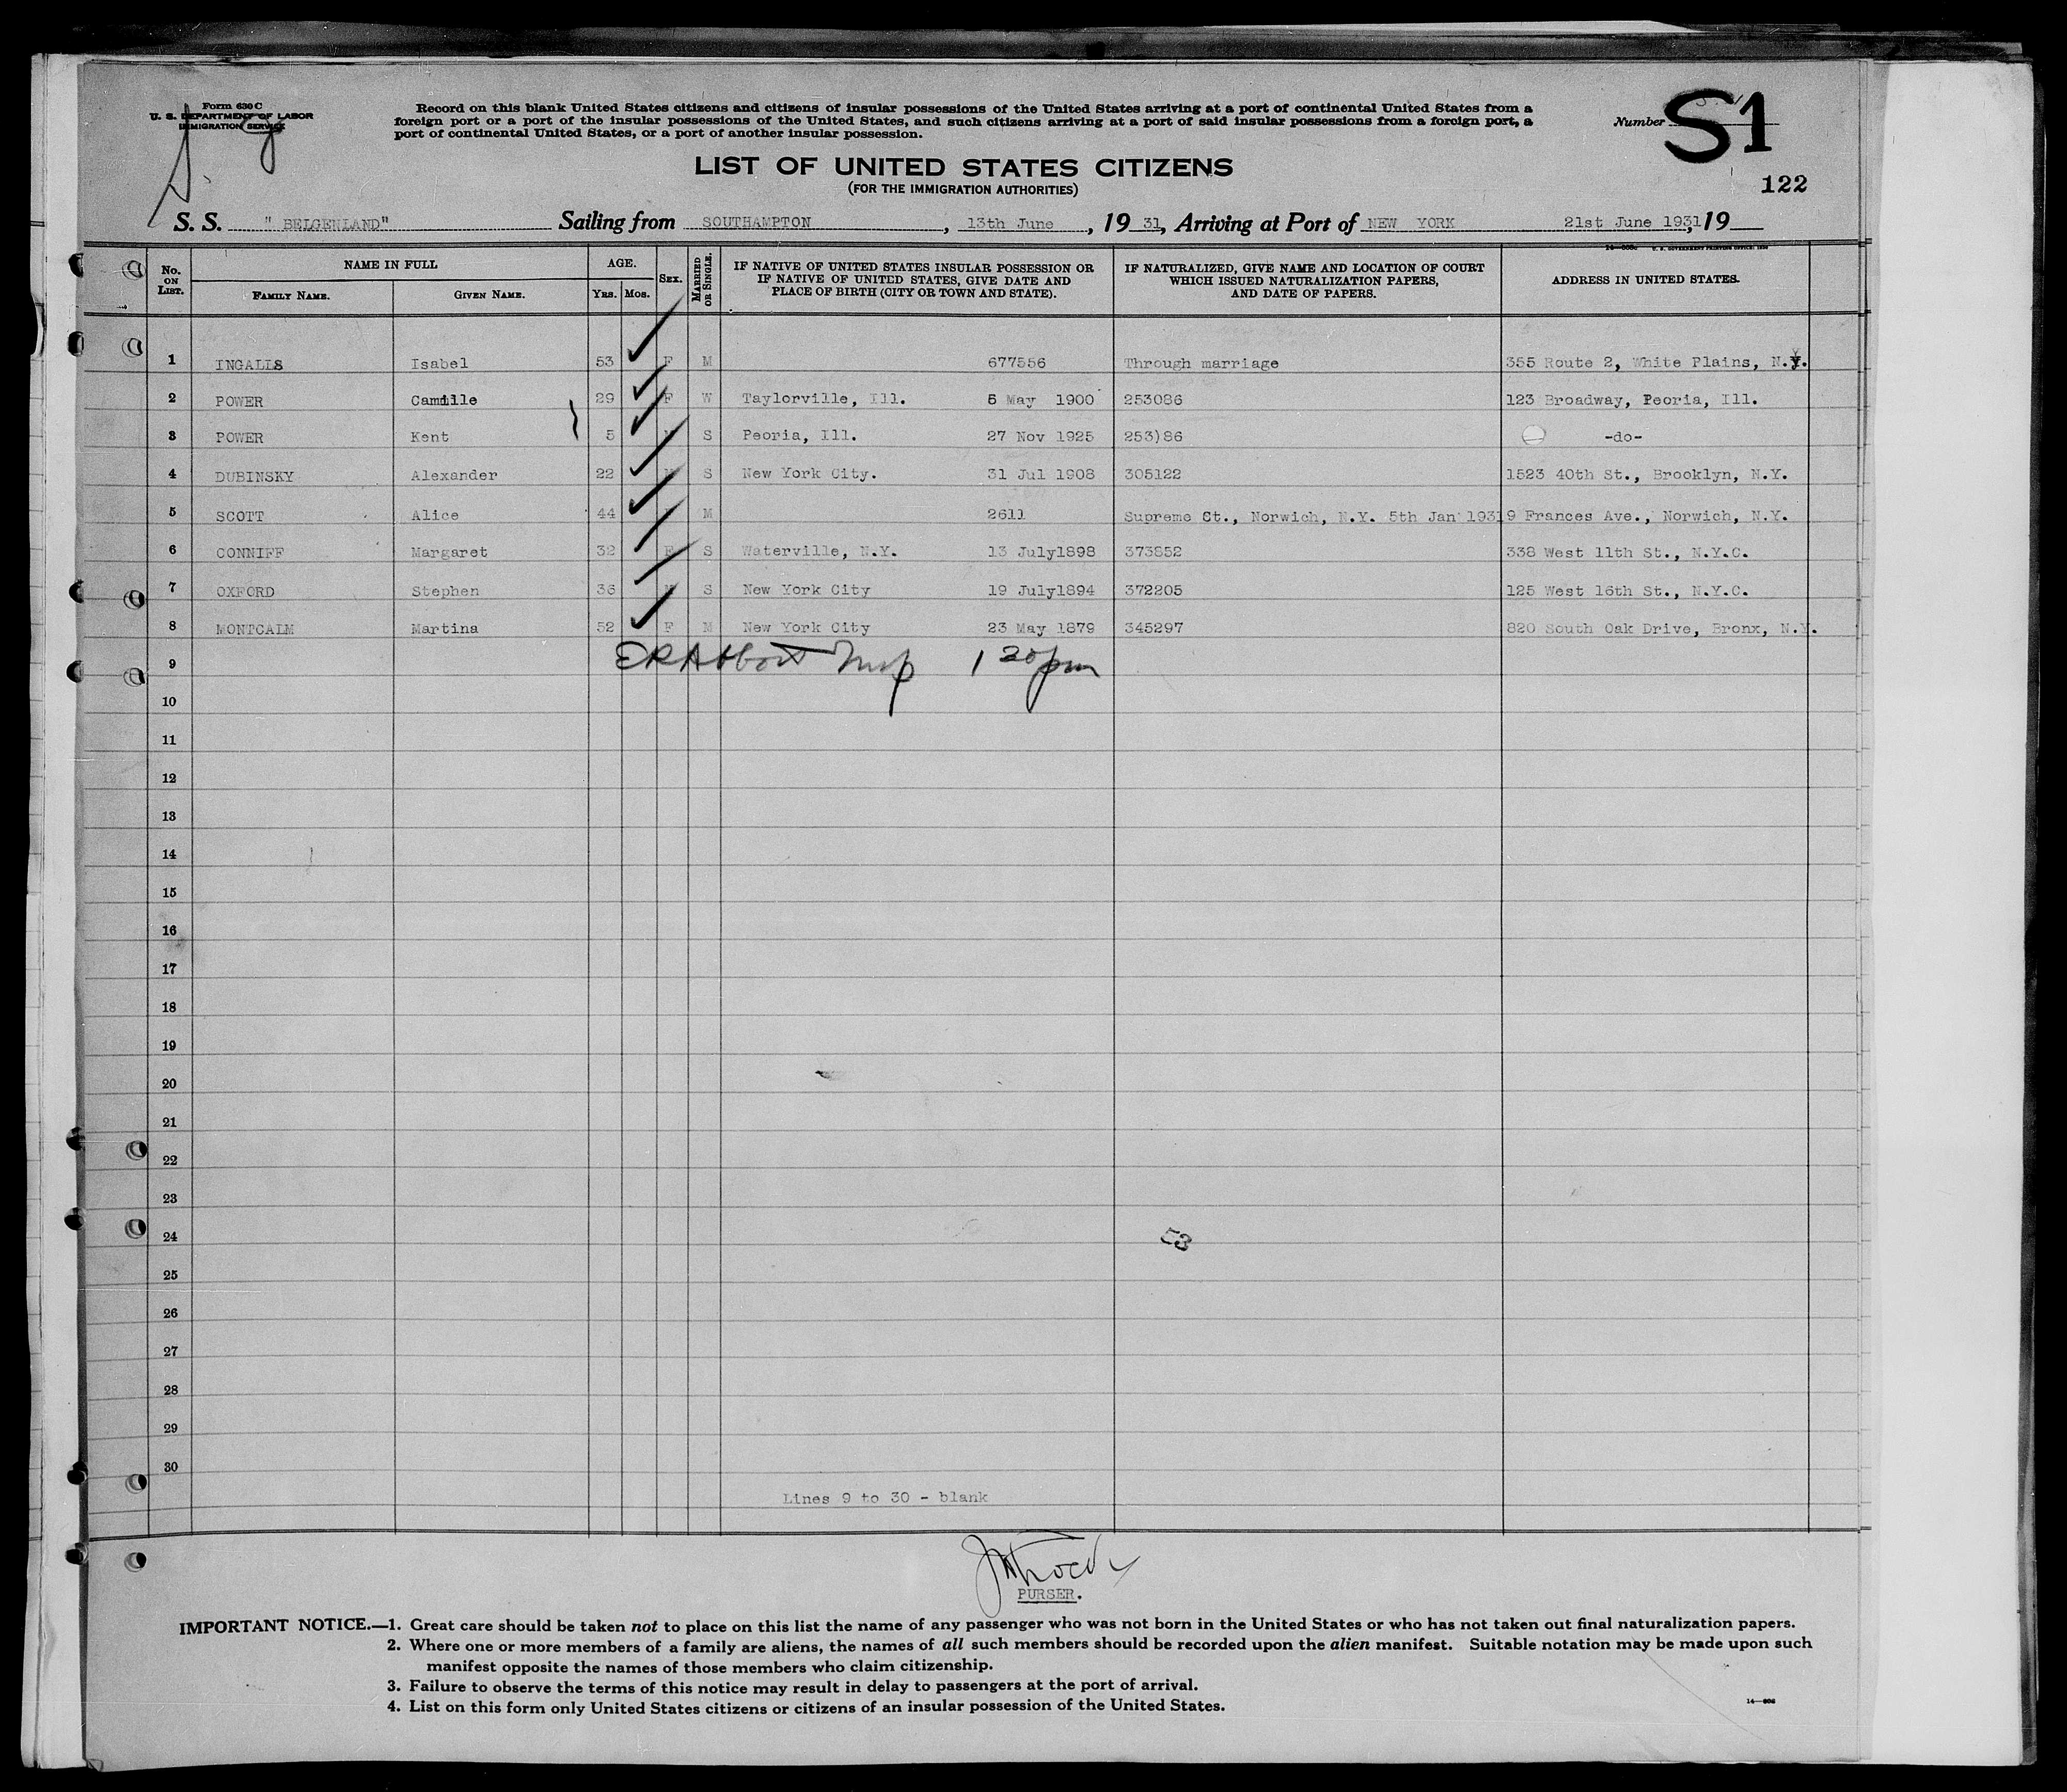 Form 630 C
U. S. DEPARTMENT OF LABOR
IMMIGRATION SERVICE
Record on this blank United States citizens and citizens of insular possessions of the United States arriving at a port of continental United States from a
foreign port or a port of the insular possessions of the United States, and such citizens arriving at a port of said insular possessions from a foreign port, a
port of continental United States, or a port of another insular possession.
Number S1
LIST OF UNITED STATES CITIZENS
(FOR THE IMMIGRATION AUTHORITIES)
122
S. S. " BELGENLAND" Sailing from SOUTHAMPTON, 13th June, 19 31, Arriving at Port of NEW YORK 21st June 1931, 19
No. ON LIST. NAME IN FULL AGE. SEX. MARRIED OR SINGLE. IF NATIVE OF UNITED STATES INSULAR POSSESSION OR IF NATIVE OF UNITED STATES, GIVE DATE AND PLACE OF BIRTH (CITY OR TOWN AND STATE). IF NATURALIZED, GIVE NAME AND LOCATION OF COURT WHICH ISSUED NATURALIZATION PAPERS, AND DATE OF PAPERS. ADDRESS IN UNITED STATES.
FAMILY NAME. GIVEN NAME. YRS. MOS.
1 INGALLS Isabel 53 F M 677556 Through marriage 355 Route 2, White Plains, N.Y.
2 POWER Camille 29 F W Taylorville, Ill. 5 May 1900 253086 123 Broadway, Peoria, Ill.
3 POWER Kent 5 S Peoria, Ill. 27 Nov 1925 253)86 -do-
4 DUBINSKY Alexander 22 M S New York City. 31 Jul 1908 305122 1523 40th St., Brooklyn, N.Y.
5 SCOTT Alice 44 M 2611 Supreme Ct., Norwich, N.Y. 5th Jan 1931 9 Frances Ave., Norwich, N.Y.
6 CONNIFF Margaret 32 F S Waterville, N.Y. 13 July1898 373852 338 West 11th St., N.Y.C.
7 OXFORD Stephen 36 M S New York City 19 July1894 372205 125 West 16th St., N.Y.C.
8 MONTCALM Martina 52 F M New York City 23 May 1879 345297 820 South Oak Drive, Bronx, N.Y.
9 ERAbbott Insp 1 20 pm
10
11
12
13
14
15
16
17
18
19
20
21
22
23
24
53
25
26
27
28
29
30
Lines 9 to 30 - blank
PURSER.
IMPORTANT NOTICE.—1. Great care should be taken not to place on this list the name of any passenger who was not born in the United States or who has not taken out final naturalization papers.
2. Where one or more members of a family are aliens, the names of all such members should be recorded upon the alien manifest. Suitable notation may be made upon such
manifest opposite the names of those members who claim citizenship.
3. Failure to observe the terms of this notice may result in delay to passengers at the port of arrival.
4. List on this form only United States citizens or citizens of an insular possession of the United States.